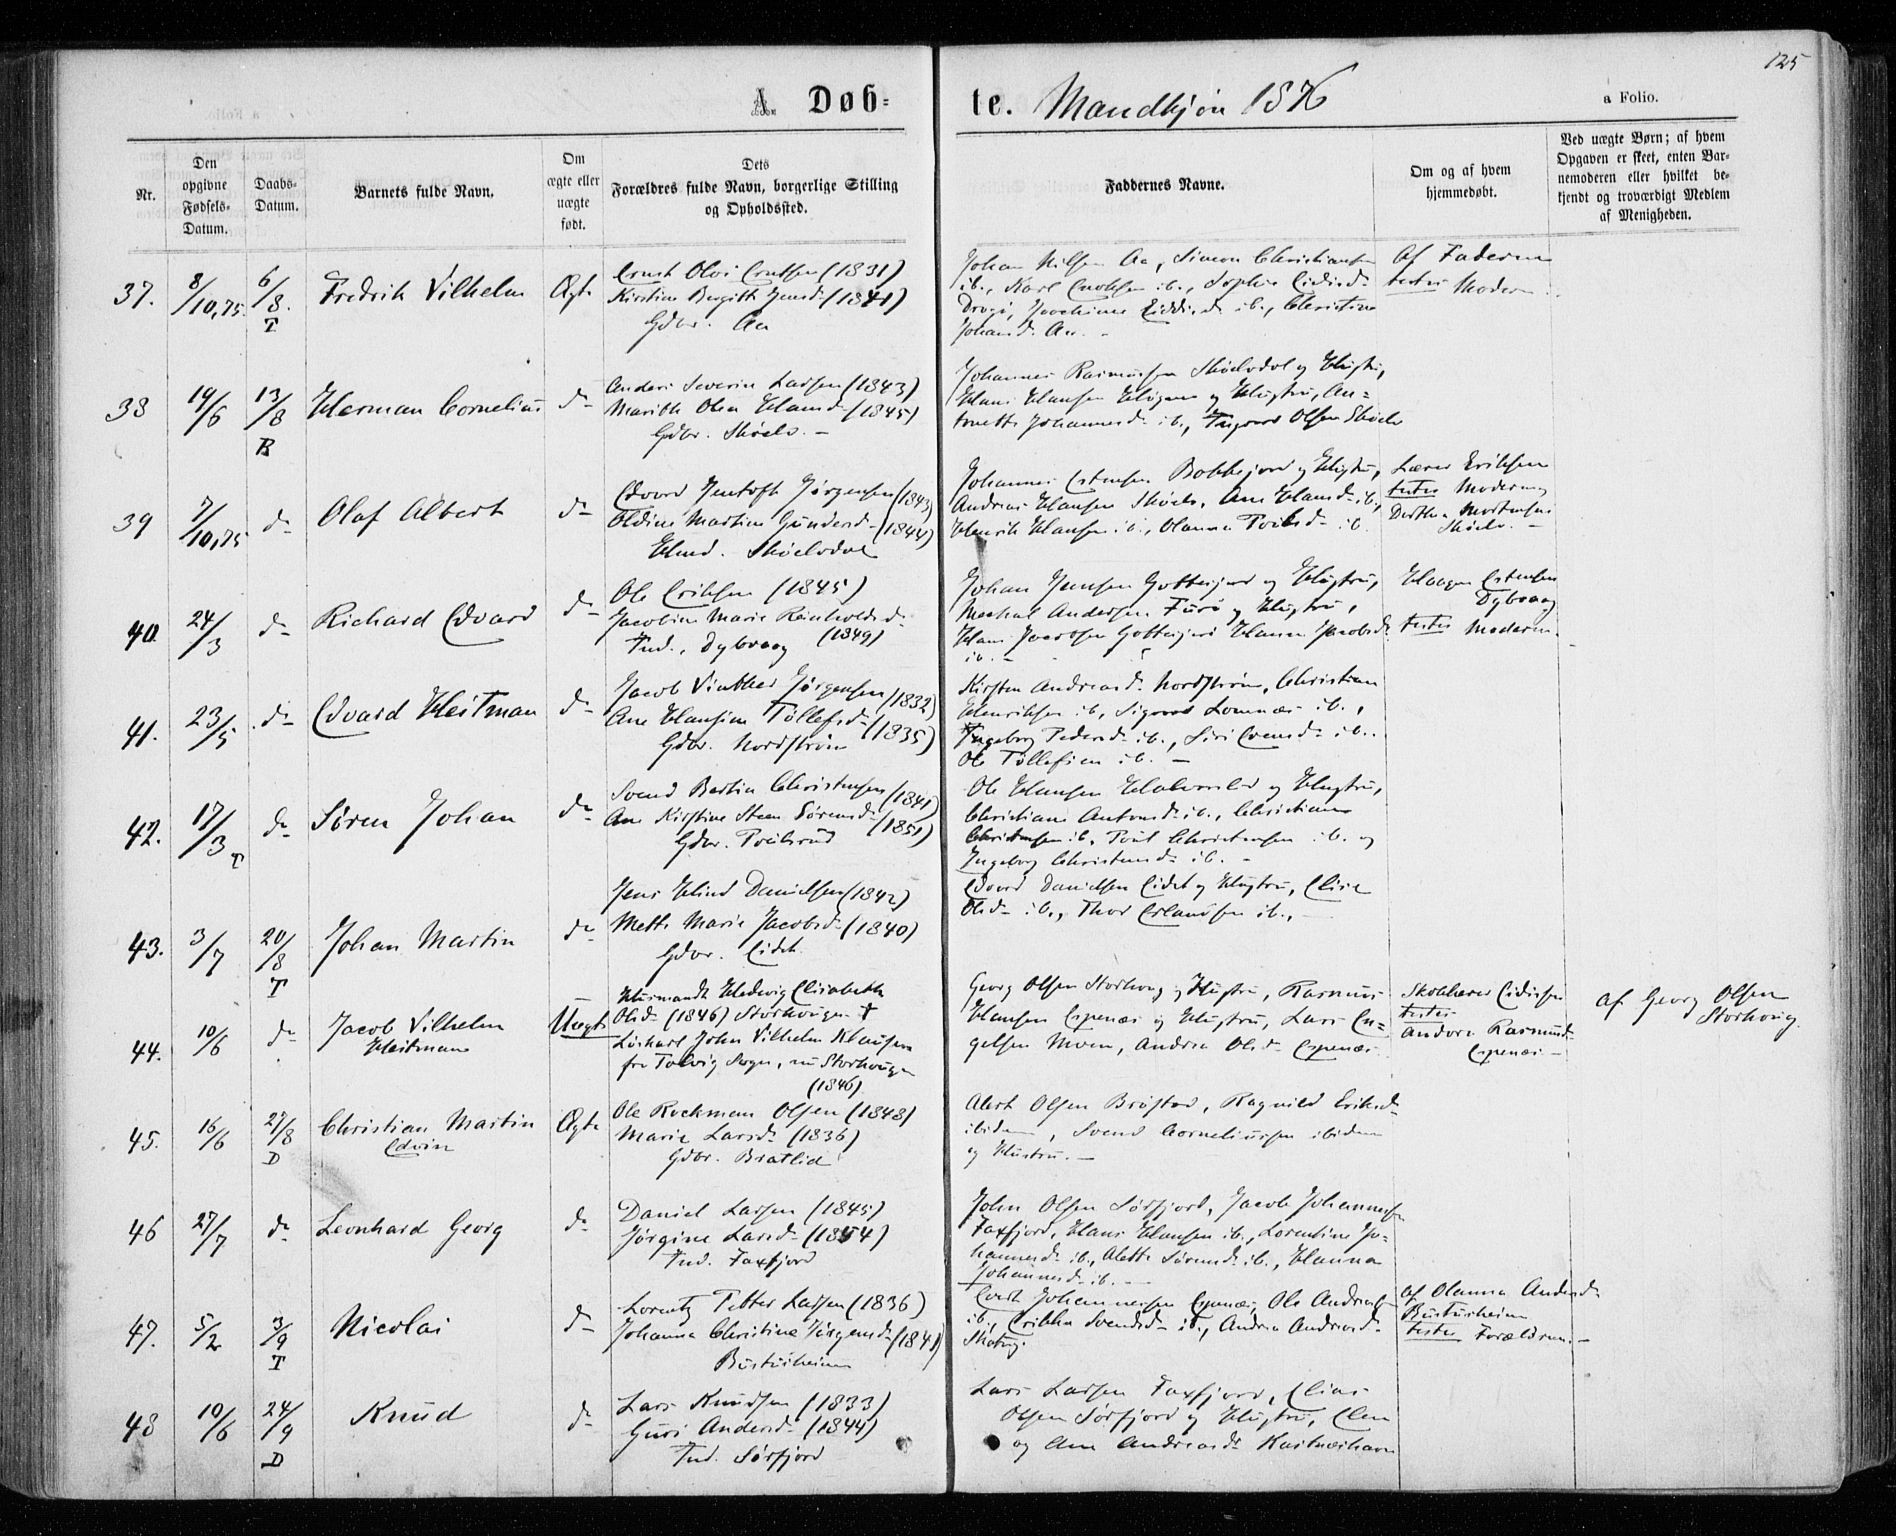 125
A. Døb-te. Mandkjøn 1876
a Folio.
Nr.
Den opgivne Fødsels-Datum.
Daabs-Datum.
Barnets fulde Navn.
Om ægte eller uægte født.
Dets Forældres fulde Navn, borgerlige Stilling og Opholdssted.
Faddernes Navne.
Om og af hvem hjemmedøbt.
Ved uægte Børn; af hvem Opgaven er skeet, enten Barnemoderen eller hvilket bekjendt og troværdigt Medlem af Menigheden.
37. 8/10,75. 6/8. T Fredrik Vilhelm Ægte
(1831)
Kirstine Bergitte Jensd. (1841)
Gdbr. Aa
Johan Nilsen Aa, Simon Christiansen
ib., Karl
ib., Christine
Johansd. Aa. -
Af Faderen
testes Moderen
38 19/6 13/8 B Herman Cornelius do
Anders Severin Larsen (1843)
Marith Olea Hansd. (1845)
Gdbr. Skøelv. -
Johannes Rasmussen Skøelvdal og Hustru,
Hans Hansen og Hustru, An-
Johannesd. ib., Olsen Skøelv
39 7/10,75 do Olaf Albert do
Edvard Jentoft Jørgensen (1843)
Oldine Martine Gundersd. (1844)
Hmd. Skøelvdal
Johannes Estensen og Hustru,
Andreas Hansen Skøelv, Ane Hansd. ib.,
Henrik Hansen ib., Olianna ib.
Lærer Eriksen
testes Moderen og
Skøelv. -
40. 24/3 do Richard Edvard do
Ole Eriksen (1845)
Jacobine Marie Reinholdsd.
Ind., Dybvaag (1849)
Johan Jensen Gottesjord og Hustru,
Andersen Furø og Hustru,
Hans Jacobsen Gottesjord Hanna Jacobsd.
ib. -
Haagen Estensen
Dybvaag
testes Moderen.
41. 23/5 do Edvard Heitman do
Jacob Vinther Jørgensen (1832)
Ane Hansine Tøllefsd. (1835)
Gdbr. Nordstrøm
Kirsten Andreasd. Nordstrøm, Christian
Henriksen ib., Sigvard ib.,
Ingeborg Pedersd. ib., Siri Svensd. ib.
Ole Tøllefsen ib. -
42. 17/3 T do Søren Johan do
Svend Bertin Christensen (1841)
Ane Kirstine Steen Sørensd. (1851)
Gdbr.
Ole Hansen og Hustru,
Christiane Antonsd. ib., Christiane
Christensen ib., Poul Christensen ib. og
Ingeborg Christensd. ib. -
43. 3/7 20/8 T Johan Martin do
Jens Hind Danielsen (1842)
Mette Marie Jacobsd. (1840)
Gdbr. Eidet
Edvard Danielsen Eidet og Hustru, Elise
Olsd. ib., Thor Erlandsen ib., -
44. 10/6 do Jacob Vilhelm Heitman Uægte
Hedevig Elisabeth
Olsd. (1846) Storhaugen †
John Vilhelm Klausen
fra Talvig Sogn, nu Storhaugen
(1846)
Georg Olsen Storhaug og Hustru, Rasmus
Hansen Espenæs og Hustru, Lars En-
gelsen Moen, Andrea Olsd. Espenæs
testes
Andora Rasmusd.
Espenæs -
af Georg Olsen
Storhoug.
45. 16/6 27/8 D Christian Martin Edvin Ægte
Ole Rockman Olsen (1848)
Marie Larsd. (1836)
Gdbr. Bratlid
Olsen Brøstad, Ragnild Eriksd.
ibidem, Svend Corneliussen ibidem
og Hustru. -
46 27/7 do Leonhard Georg do
Daniel Larsen (1845)
Jørgine Larsd. (1854)
Ind. Faxfjord
John Olsen Sørfjord, Jacob Johannesen
Faxfjord, Hans Hansen ib., Lorentine Jo-
hannesd. ib., Alette Sørensd. ib., Hanna
Johannesd. ib. -
47. 5/2 3/9 T Nicolai do
Lorentz Petter Larsen (1836)
Johanna Christine Jørgensd. (1841)
Johannessen Espenæs, Ole Andreasen
ib., Erikka Svendsd. ib., Andrea Andreasd.
af Olianna Andersd.
testes Forældrene. -
48 10/6 24/9 D Knud do
Lars Knudsen (1833)
Guri Andersd. (1844)
Ind. Sørfjord
Lars Larsen Faxfjord, Elias
Olsen Sørfjord og Hustru, Elen
og Ane Andreasd. Kastneshavn